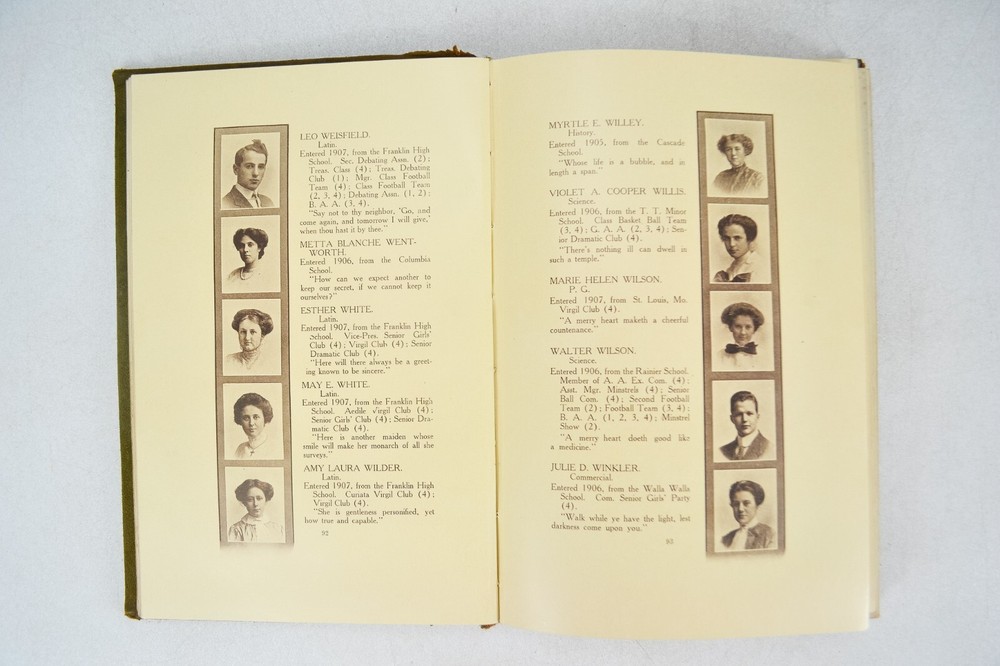 LEO WEISFIELD.
Latin.
Entered 1907, from the Franklin High
School. Sec. Debating Assn. (2);
Treas. Class (4); Treas. Debating
Club (1); Mgr. Class Football
Team (4); Class Football Team
(2, 3, 4); Debating Assn. (1, 2);
B. A. A. (3, 4).
"Say not to thy neighbor, 'Go, and
come again, and tomorrow I will give,'
when thou hast it by thee."
METTA BLANCHE WENT-
WORTH.
Entered 1906, from the Columbia
School.
"How can we expect another to
keep our secret, if we cannot keep it
ourselves?"
ESTHER WHITE.
Latin.
Entered 1907, from the Franklin High
School. Vice-Pres. Senior Girls'
Club (4); Virgil Club (4); Senior
Dramatic Club (4).
"Here will there always be a greet-
ing known to be sincere."
MAY E. WHITE.
Latin.
Entered 1907, from the Franklin High
School. Aedile Virgil Club (4);
Senior Girls' Club (4); Senior Dra-
matic Club (4).
"Here is another maiden whose
smile will make her monarch of all she
surveys."
AMY LAURA WILDER.
Latin.
Entered 1907, from the Franklin High
School. Curiata Virgil Club (4);
Virgil Club (4).
"She is gentleness personified, yet
how true and capable."
92
MYRTLE E. WILLEY.
History.
Entered 1905, from the Cascade
School.
"Whose life is a bubble, and in
length a span."
VIOLET A. COOPER WILLIS.
Science.
Entered 1906, from the T. T. Minor
School. Class Basket Ball Team
(3, 4); G. A. A. (2, 3, 4); Sen-
ior Dramatic Club (4).
"There's nothing ill can dwell in
such a temple."
MARIE HELEN WILSON.
P. G.
Entered 1907, from St. Louis, Mo.
Virgil Club (4).
"A merry heart maketh a cheerful
countenance."
WALTER WILSON.
Science.
Entered 1906, from the Rainier School.
Member of A. A. Ex. Com. (4);
Asst. Mgr. Minstrels (4); Senior
Ball Com. (4); Second Football
Team (2); Football Team (3, 4);
B. A. A. (1, 2, 3, 4); Minstrel
Show (2).
"A merry heart doeth good like
a medicine."
JULIE D. WINKLER.
Commercial.
Entered 1906, from the Walla Walla
School. Com. Senior Girls' Party
(4).
"Walk while ye have the light, lest
darkness come upon you."
93